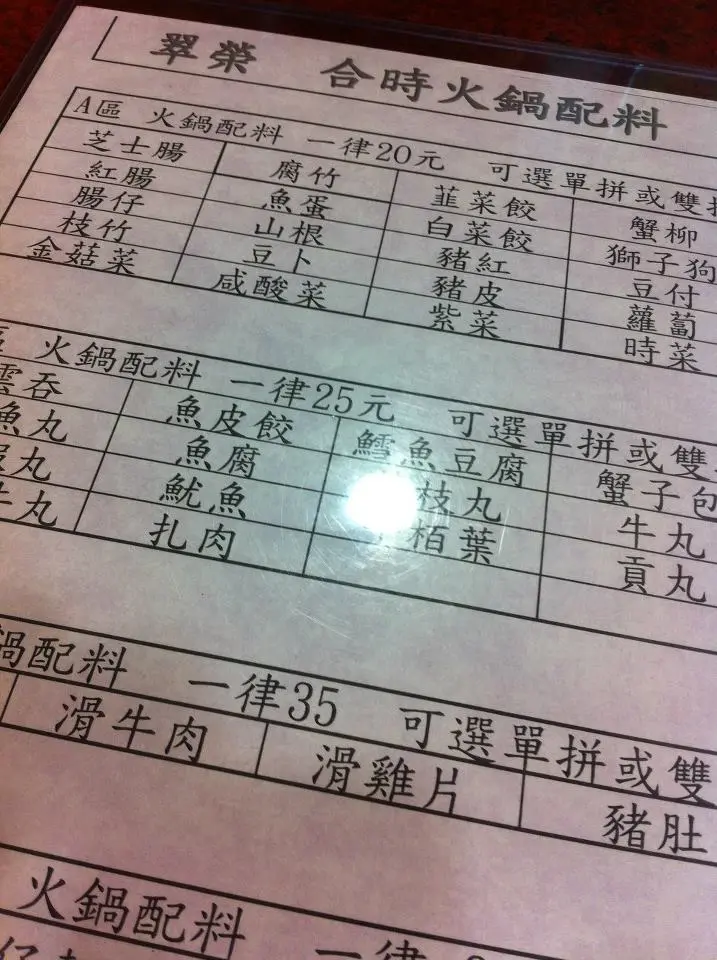 翠榮 合時火鍋配料
A區 火鍋配料 一律20元 可選單拼或雙拼
芝士腸 腐竹 韮菜餃 蟹柳
紅腸 魚蛋 白菜餃 獅子狗
腸仔 山根 豬紅 豆付
枝竹 豆卜 豬皮 蘿蔔
金菇菜 咸酸菜 紫菜 時菜
區 火鍋配料 一律25元 可選單拼或雙
雲吞 魚皮餃 鱈魚豆腐 蟹子包
魚丸 魚腐 枝丸 牛丸
丸 魷魚 栢葉 貢丸
丸 扎肉
鍋配料 一律35 可選單拼或雙
滑牛肉 滑雞片 豬肚
火鍋配料 一律